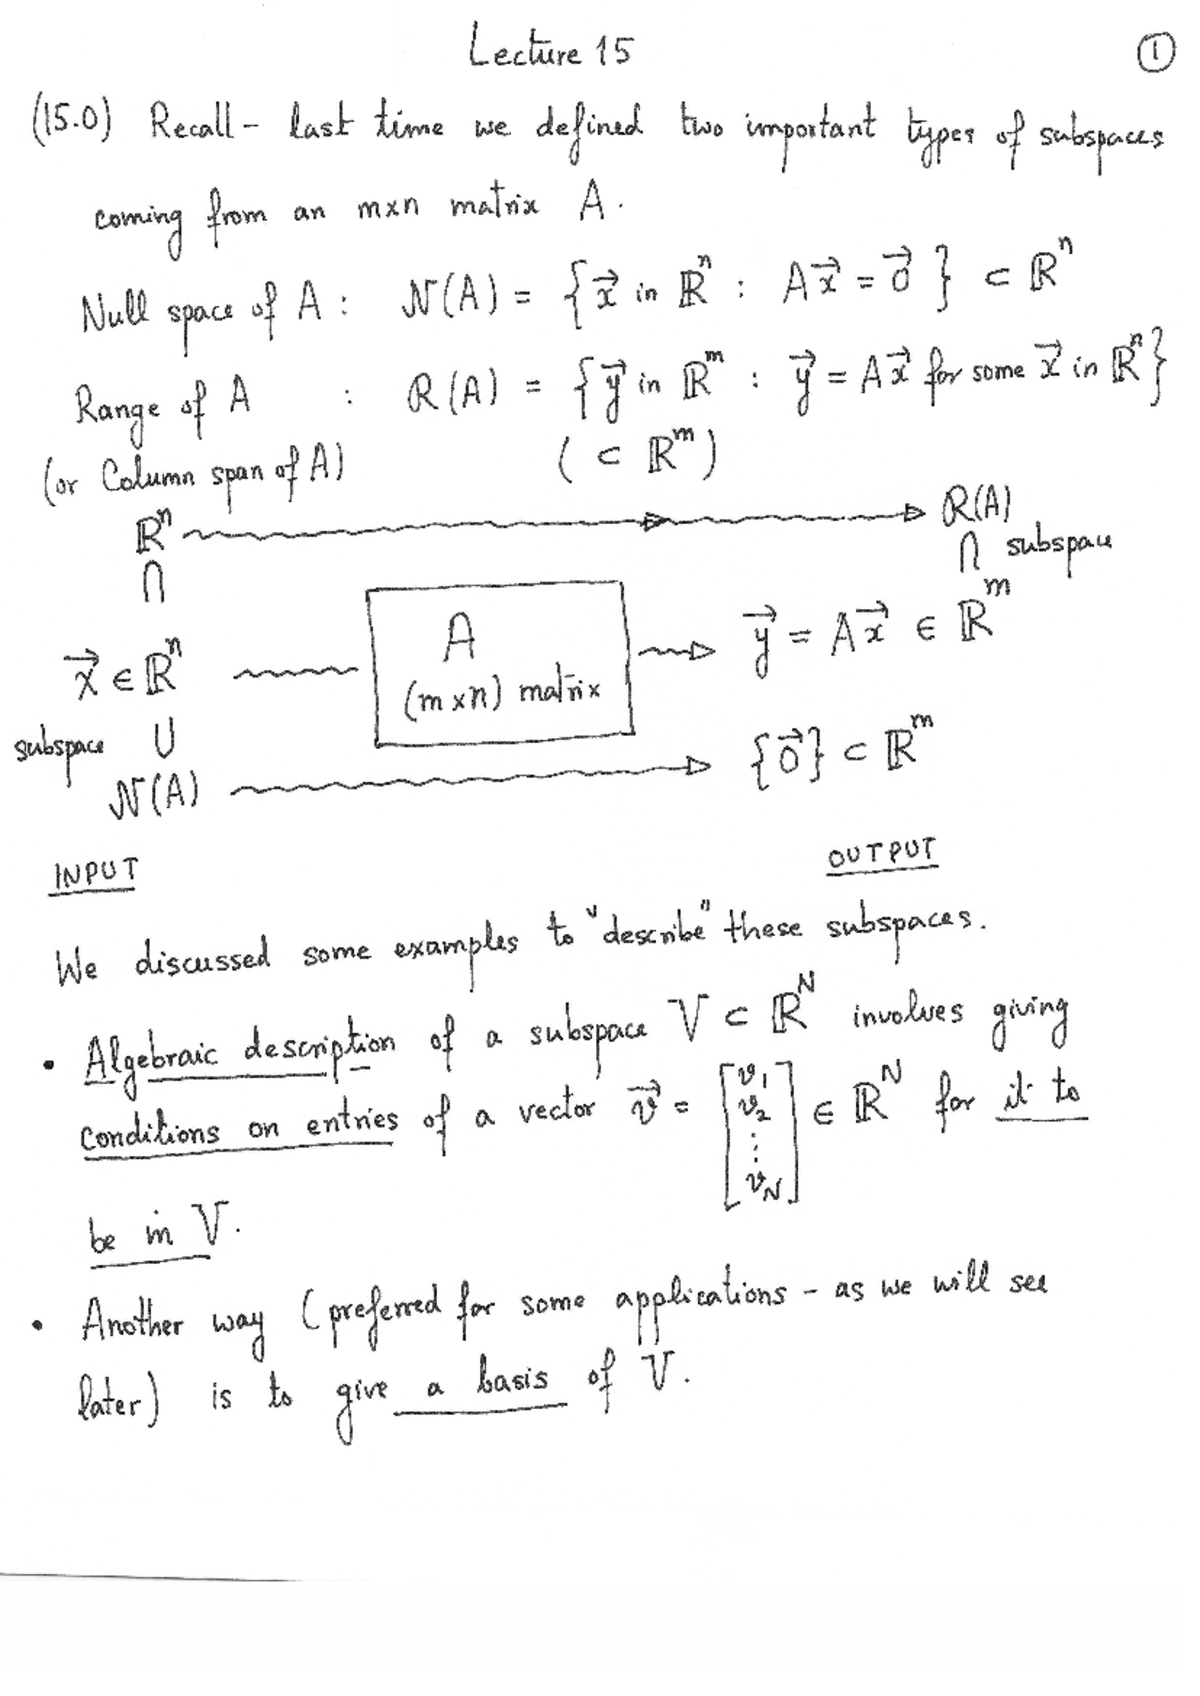 Lecture 15 ①
(15.0) Recall - last time we defined two important types of subspaces
coming from an m×n matrix A.
Null space of A : N(A) = { x⃗ in ℝⁿ : Ax⃗ = 0⃗ } ⊂ ℝⁿ
Range of A : R(A) = { y⃗ in ℝᵐ : y⃗ = Ax⃗ for some x⃗ in ℝⁿ }
(or Column span of A) ( ⊂ ℝᵐ )
ℝⁿ R(A)
∩ ∩ subspace
A
x⃗ ∈ ℝⁿ (m×n) matrix y⃗ = Ax⃗ ∈ ℝᵐ
subspace ∪
N(A) {0⃗} ⊂ ℝᵐ
INPUT OUTPUT
We discussed some examples to "describe" these subspaces.
• Algebraic description of a subspace V ⊂ ℝᴺ involves giving
conditions on entries of a vector v⃗ = [v₁ v₂ ⋮ v_N] ∈ ℝᴺ for it to
be in V.
• Another way (preferred for some applications - as we will see
later) is to give a basis of V.